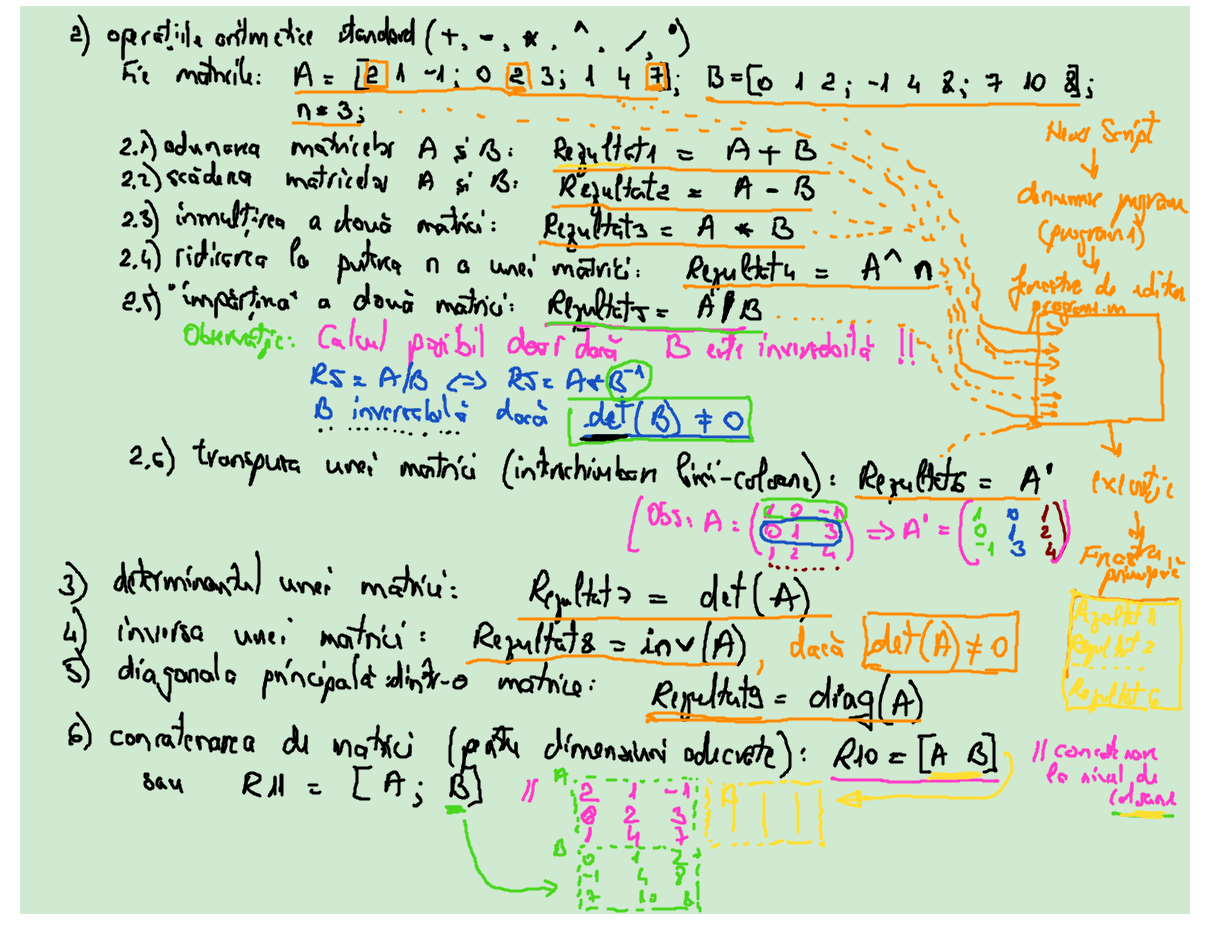 2) operațiile aritmetice standard (+, -, *, ^, /, ')
Fie matricile: A = [2 1 -1; 0 2 3; 1 4 7]; B = [0 1 2; -1 4 8; 7 10 8];
n = 3;
2.1) adunarea matricelor A și B: Rezultat1 = A + B
2.2) scăderea matricelor A și B: Rezultat2 = A - B
2.3) inmulțirea a două matrici: Rezultat3 = A * B
2.4) ridicarea la puterea n a unei matrici: Rezultat4 = A^n
2.5) "impărțirea" a două matrici: Rezultat5 = A/B
Observație: Calcul posibil doar dacă B este inversabilă !!
R5 = A/B <=> R5 = A * B⁻¹
B inversabilă dacă det(B) ≠ 0
2.6) transpusa unei matrici (intrschimbare linii-coloane): Rezultat6 = A'
[Obs: A = (1 0 -1
0 1 3
1 2 4) => A' = (1 0 1
0 1 2
-1 3 4)
3) determinantul unei matrici: Rezultat7 = det(A)
4) inversa unei matrici: Rezultat8 = inv(A), dacă det(A) ≠ 0
5) diagonala principală dintr-o matrice: Rezultat9 = diag(A)
6) concatenarea de matrici (pentru dimensiuni adecvate): R10 = [A B] // concatenare
la nivel de
coloane
sau R11 = [A; B] //
A
2 1 -1
0 2 3
1 4 7
B
B
0 1 2
-1 4 8
7 10 8
New Script
↓
denumire program
(program1)
↓
fereastra de editare
program1.m
↓
execuție
↓
Fereastra
principală
Rezultat 1
Rezultat 2
......
Rezultat 6